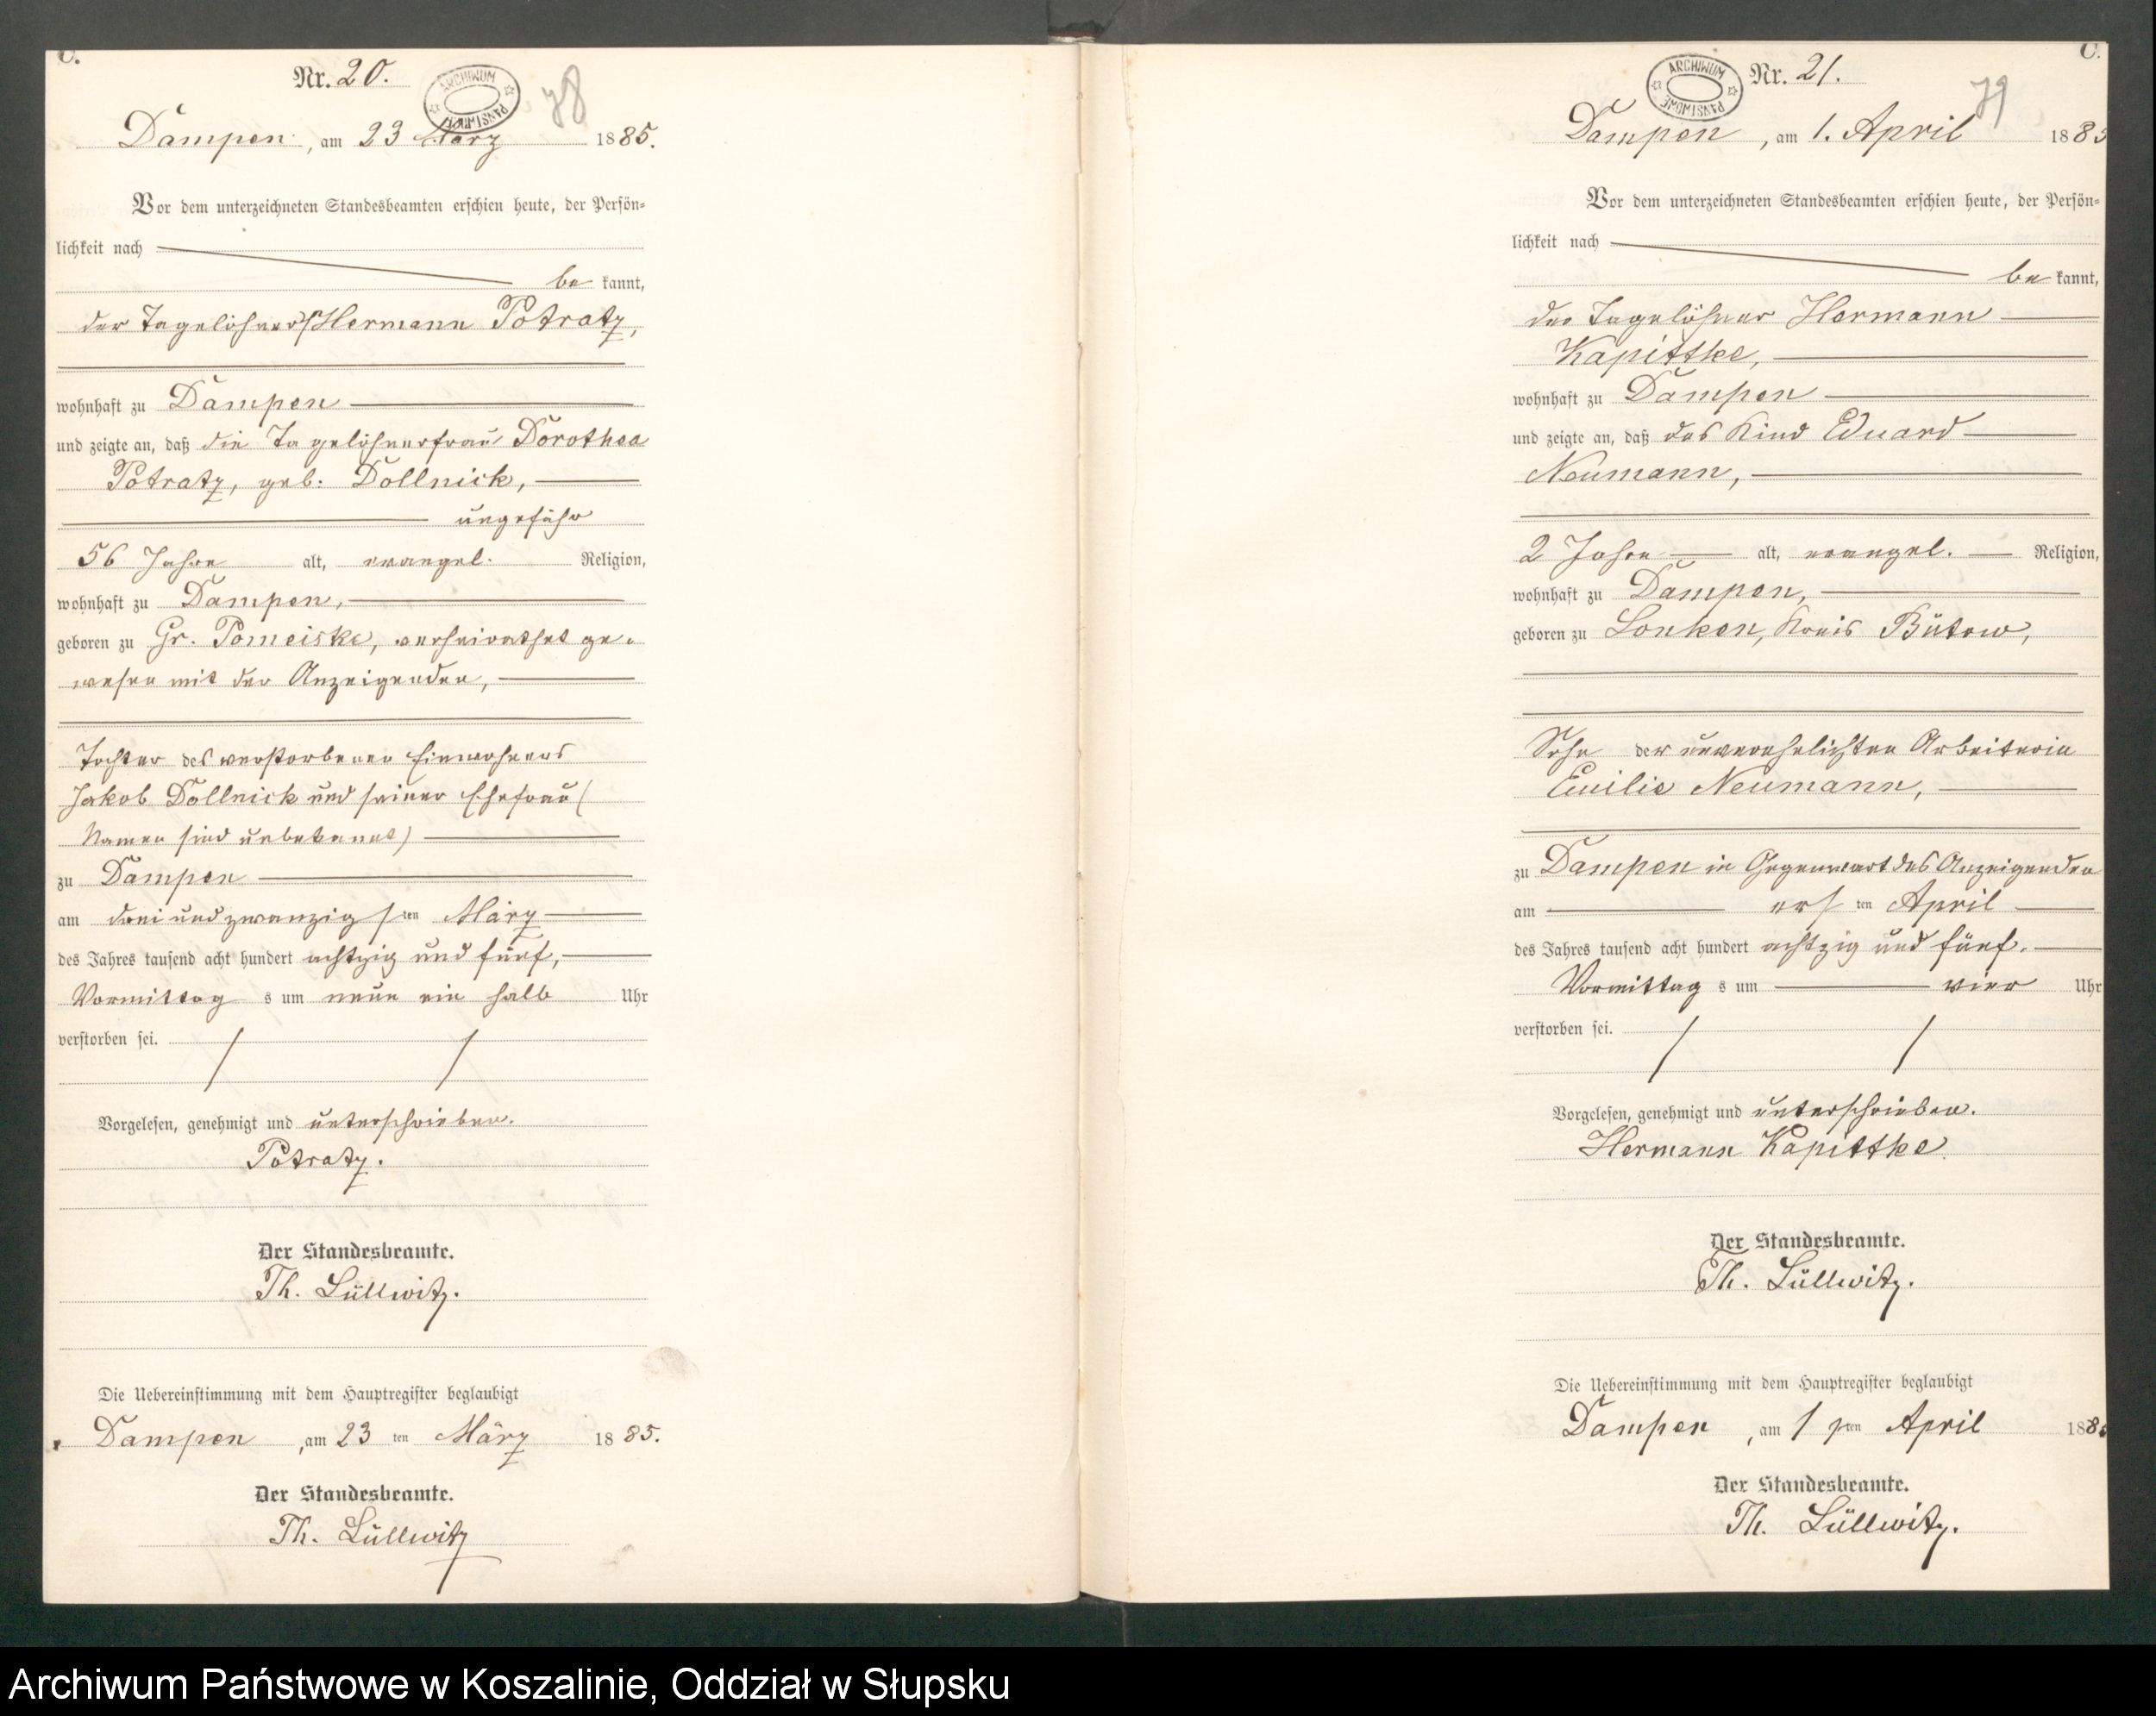 C.
Nr. 20.
ARCHIWUM PAŃSTWOWE
78
Dampen, am 23 März 1885.
Vor dem unterzeichneten Standesbeamten erschien heute, der Persön=
lichkeit nach
be kannt,
der Tagelöhner Hermann Potratz,
wohnhaft zu Dampen
und zeigte an, daß die Tagelöhnerfrau Dorothea
Potratz, geb. Dollnick,
ungefähr
56 Jahre alt, evangel. Religion,
wohnhaft zu Dampen,
geboren zu Gr. Pomeiske, verheirathet ge=
wesen mit der Anzeigenden,
Tochter des verstorbenen Einwohners
Jakob Dollnick und seiner Ehefrau (
Namen sind unbekannt)
zu Dampen
am drei und zwanzigsten März
des Jahres tausend acht hundert achtzig und fünf,
Vormittags um neun ein halb Uhr
verstorben sei.
Vorgelesen, genehmigt und unterschrieben.
Potratz.
Der Standesbeamte.
Th. Lüllwitz.
Die Uebereinstimmung mit dem Hauptregister beglaubigt
Dampen, am 23 ten März 1885.
Der Standesbeamte.
Th. Lüllwitz
C.
Nr. 21.
ARCHIWUM PAŃSTWOWE
79
Dampen, am 1. April 1885
Vor dem unterzeichneten Standesbeamten erschien heute, der Persön=
lichkeit nach
be kannt,
der Tagelöhner Hermann
Kapittke,
wohnhaft zu Dampen
und zeigte an, daß das Kind Eduard
Neumann,
2 Jahre alt, evangel. Religion,
wohnhaft zu Dampen,
geboren zu Lonken, Kreis Bütow,
Sohn der unverehelichten Arbeiterin
Emilie Neumann,
zu Dampen in Gegenwart des Anzeigenden
am ersten April
des Jahres tausend acht hundert achtzig und fünf.
Vormittags um vier Uhr
verstorben sei.
Vorgelesen, genehmigt und unterschrieben.
Hermann Kapittke.
Der Standesbeamte.
Th. Lüllwitz.
Die Uebereinstimmung mit dem Hauptregister beglaubigt
Dampen, am 1 sten April 188
Der Standesbeamte.
Th. Lüllwitz.
Archiwum Państwowe w Koszalinie, Oddział w Słupsku